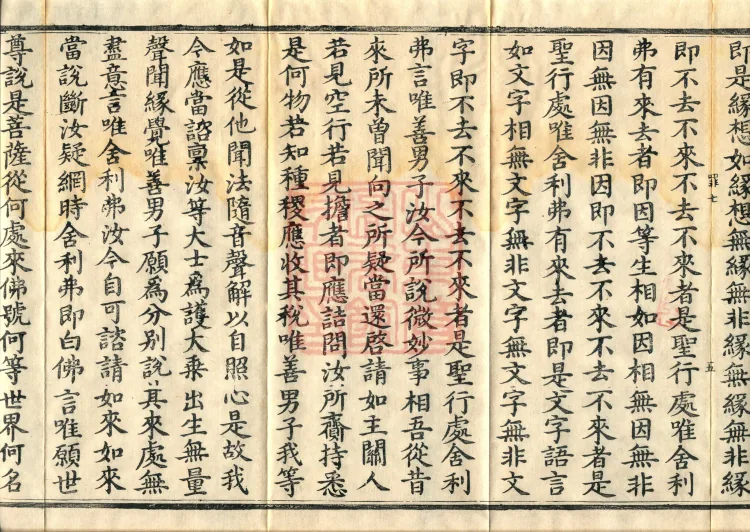 即是緣想如緣想無緣無非緣無緣無非緣
即不去不來不去不來者是聖行處唯舍利
弗有來去者即因等生相如因相無因無非
因無因無非因即不去不來不去不來者是
聖行處唯舍利弗有來去者即是文字語言
如文字相無文字無非文字無文字無非文
字即不去不來不去不來者是聖行處舍利
弗言唯善男子汝今所說微妙事相吾從昔
來所未曾聞向之所疑當還啓請如主關人
若見空行若見擔者即應詰問汝所齎持悉
是何物若知種稷應收其稅唯善男子我等
如是從他聞法隨音聲解以自照心是故我
今應當諮稟汝等大士為護大乘出生無量
聲聞緣覺唯善男子願為分別說其來處無
盡意言唯舍利弗汝今自可諮請如來如來
當說斷汝疑網時舍利弗即白佛言唯願世
尊說是菩薩從何處來佛號何等世界何名
罪七
五